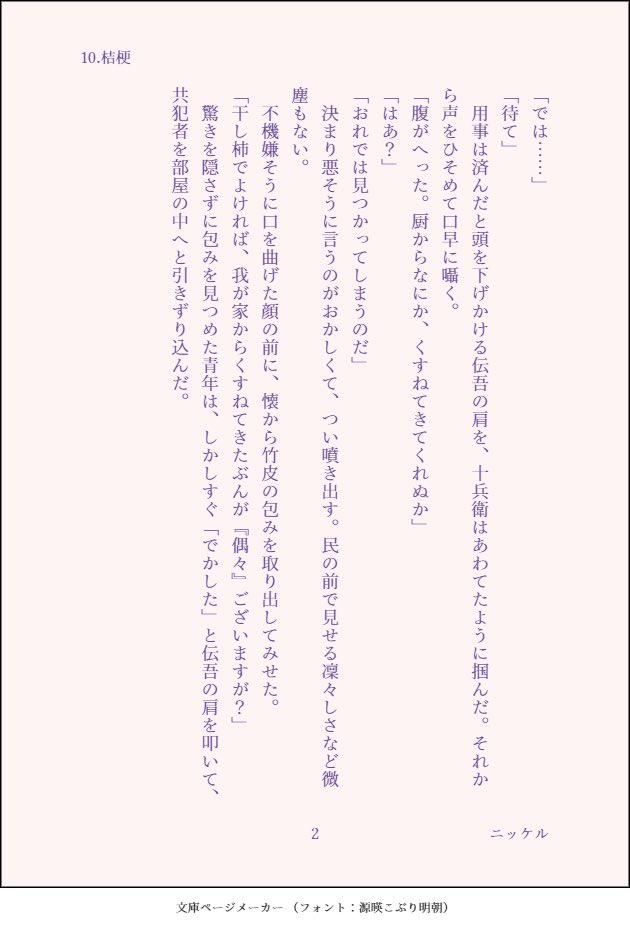 10.桔梗
「では……」
「待て」
　用事は済んだと頭を下げかける伝吾の肩を、十兵衛はあわてたように掴んだ。それか
ら声をひそめて口早に囁く。
「腹がへった。厨からなにか、くすねてきてくれぬか」
「はあ？」
「おれでは見つかってしまうのだ」
　決まり悪そうに言うのがおかしくて、つい噴き出す。民の前で見せる凜々しさなど微
塵もない。
　不機嫌そうに口を曲げた顔の前に、懐から竹皮の包みを取り出してみせた。
「干し柿でよければ、我が家からくすねてきたぶんが『偶々』ございますが？」
　驚きを隠さずに包みを見つめた青年は、しかしすぐ「でかした」と伝吾の肩を叩いて、
共犯者を部屋の中へと引きずり込んだ。
2
ニッケル
文庫ページメーカー （フォント：源暎こぶり明朝）